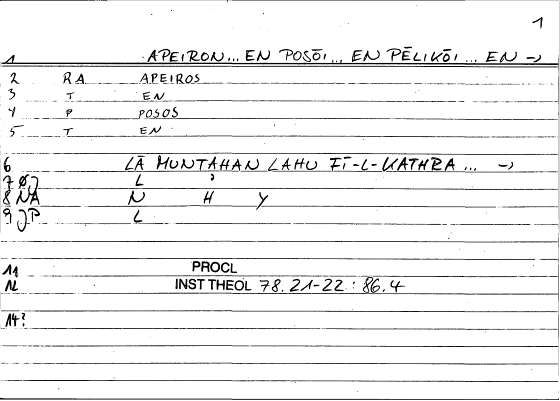 1
1 APEIRON... EN POSŌI... EN PĒLIKŌI... EN →
2 RA APEIROS
3 T EN
4 P POSOS
5 T EN
6 LĀ MUNTAHAN LAHU FĪ-L-KATHRA... →
7 L
8 NA N H Y
9 JP L
11 PROCL
12 INST THEOL 78.21-22 : 86.4
14?